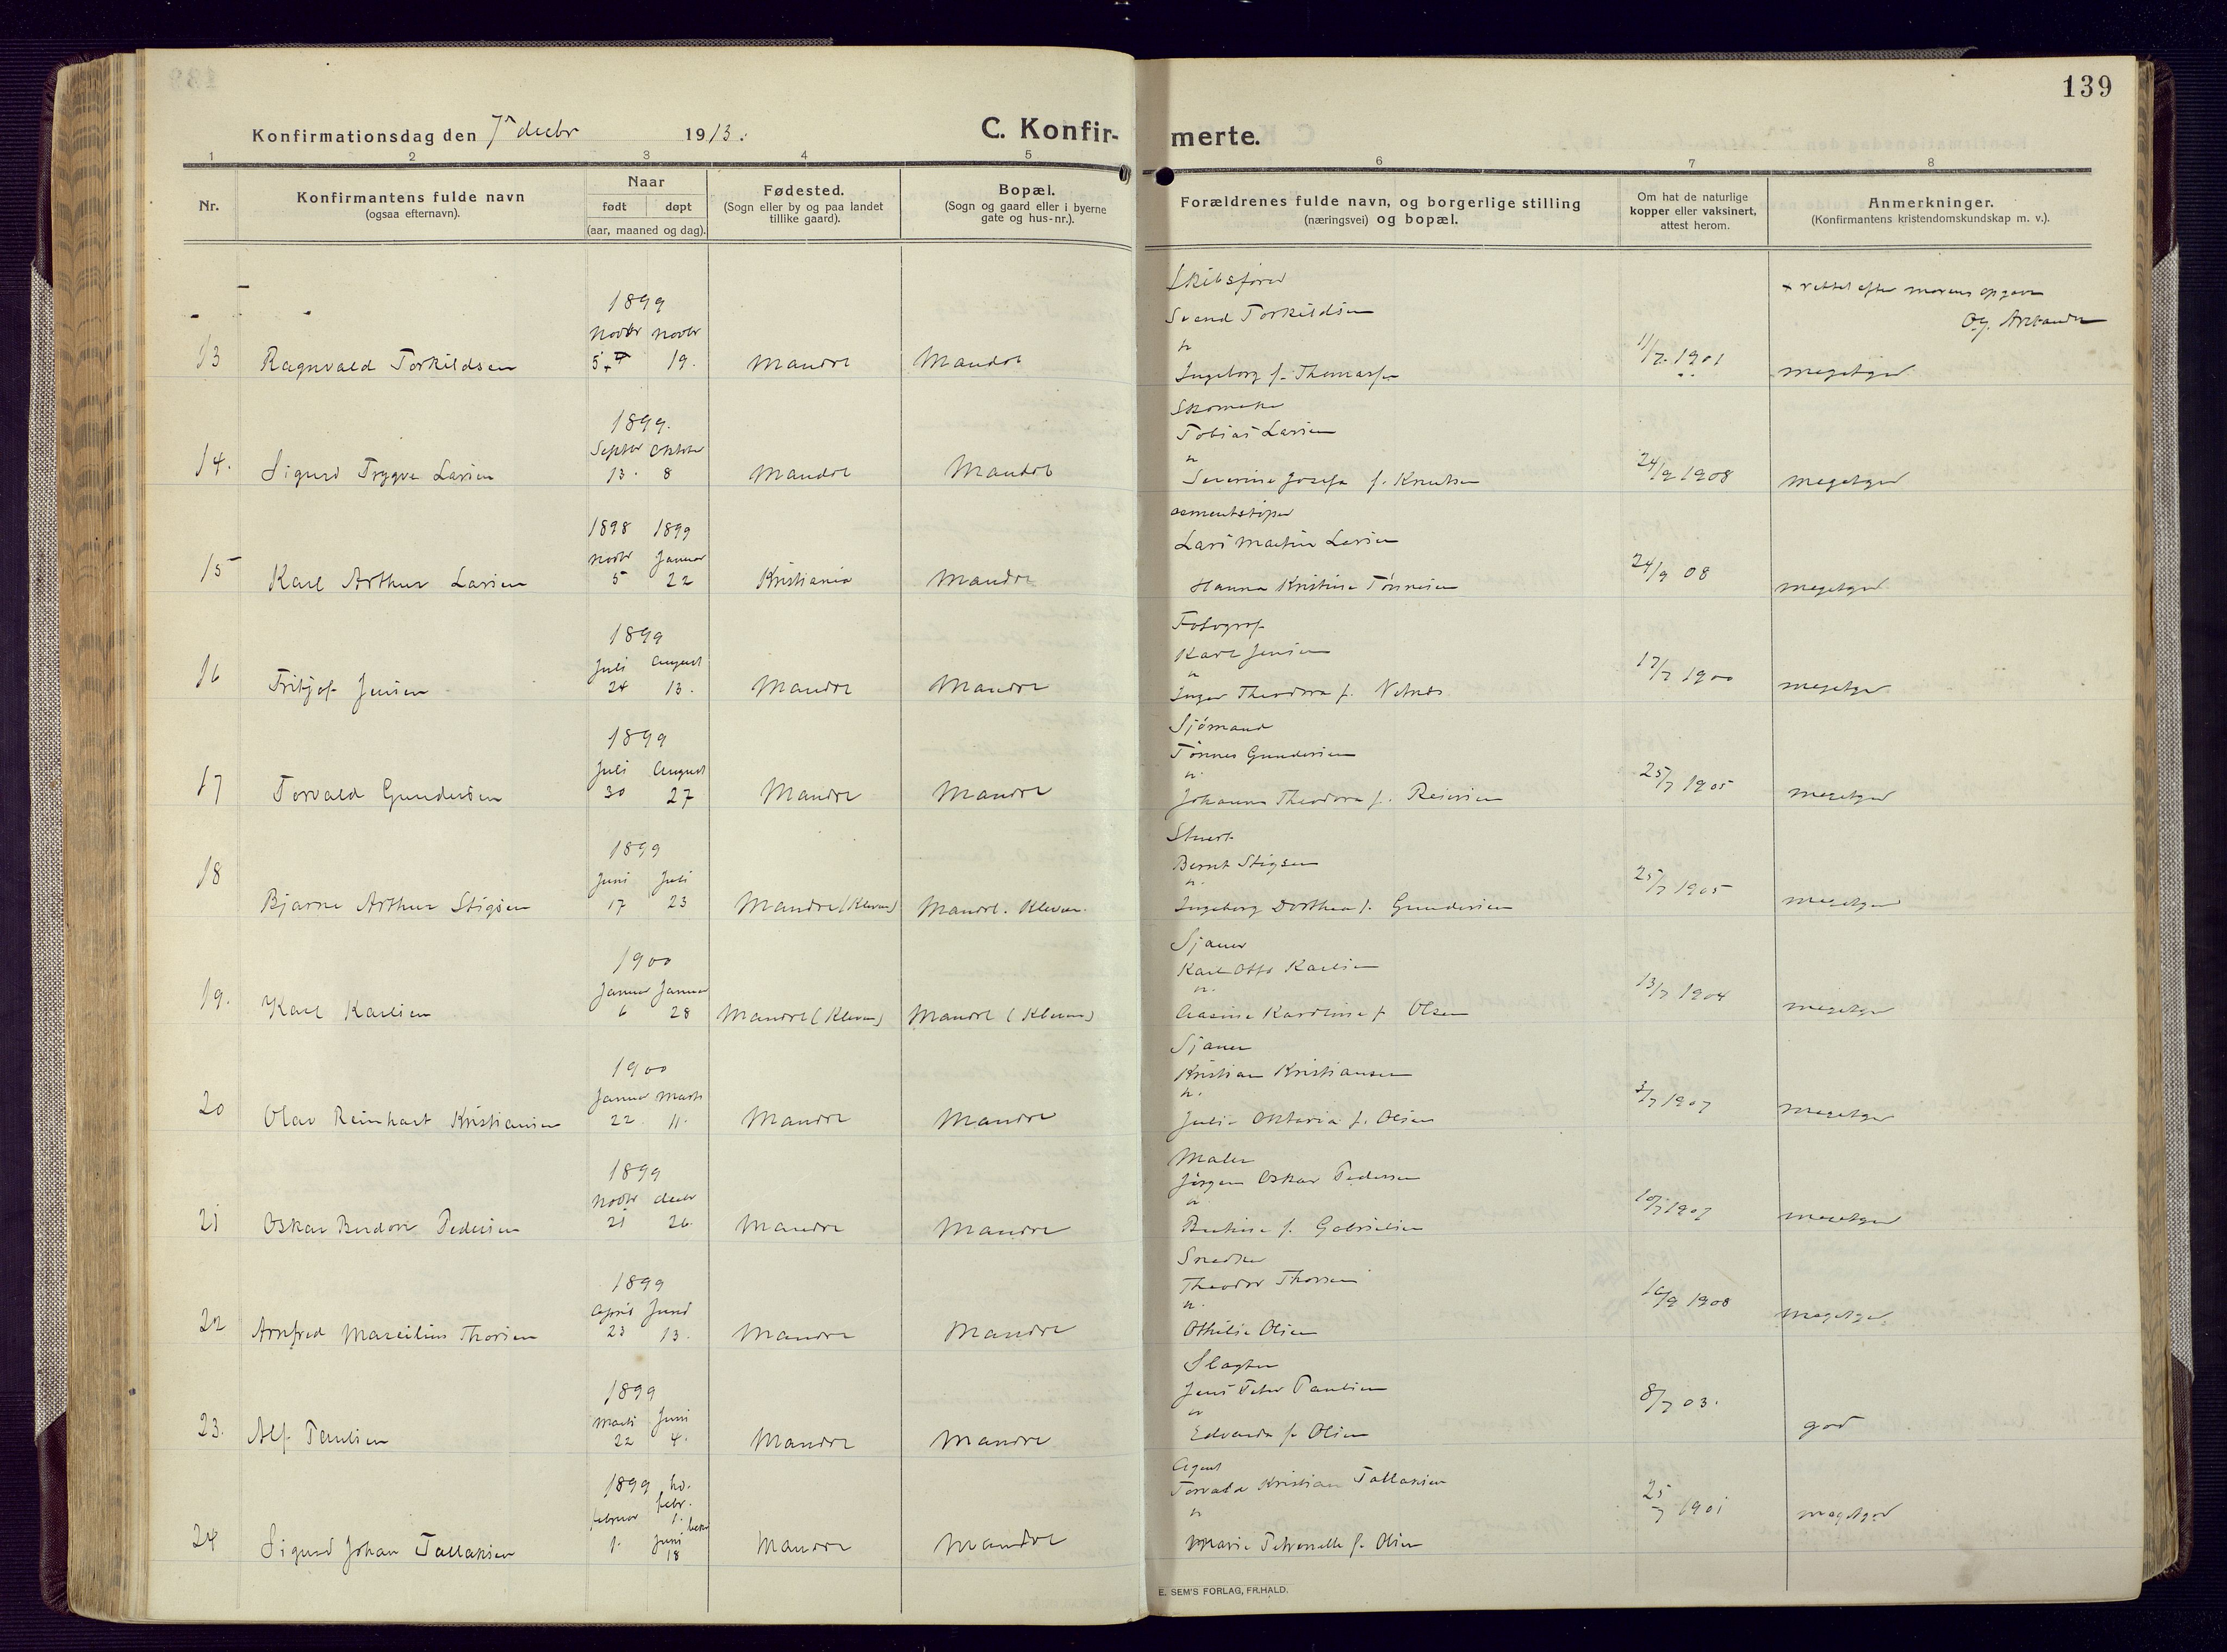 139
Konfirmationsdag den 7de decbr 1913.
C. Konfir-
merte.
1 2 3 4 5 6 7 8
Nr.
Konfirmantens fulde navn
(ogsaa efternavn).
Naar
født døpt
(aar, maaned og dag).
Fødested.
(Sogn eller by og paa landet
tillike gaard).
Bopæl.
(Sogn og gaard eller i byerne
gate og hus-nr.).
Forældrenes fulde navn, og borgerlige stilling
(næringsvei) og bopæl.
Om hat de naturlige
kopper eller vaksinert,
attest herom.
Anmerkninger.
(Konfirmantens kristendomskundskap m. v.).
Skibsfører
+ rettet efter morens opgave
1899
Svend Torkildsen
novbr novbr
&
13 Ragnvald Torkildsen 5 + 7 19. Mandre Mandre Ingeborg f. Thomassen 11/7 1901 megetgod
1899.
Skomaker
Tobias Larsen
Septbr Oktober
&
14. Sigurd Trygve Larsen 13. 8 Mandre Mandre Severine Josefa f. Knutsen 24/9 1908 megetgod
1898 1899
cementstøper
Lars Martin Larsen
novbr Januar
15 Karl Arthur Larsen 5 22 Kristiania Mandre Hanna Kristine Tønnesen 24/9 08 megetgod
1899
Fotograf
Karl Jensen
Juli August
&
16 Fritjof Jensen 24 13. Mandre Mandre Inger Theodora f. 17/7 1900 megetgod
1899
Sjømand
Tønnes Gundersen
Juli August
&
17 Torvald Gundersen 30 27 Mandre Mandre Johanna Theodora f. Reiersen 25/7 1905 megetgod
1899
Stuert
Bernt Stigsen
Juni Juli
&
18 Bjarne Arthur Stigsen 17 23 Mandre (Kleven) Mandre. Kleven. Ingeborg Dorthea f. Gundersen 25/7 1905 megetgod
1900
Sjauer
Karl Otto Karlsen
Januar Januar
&
19. Karl Karlsen 6 28 Mandre (Kleven) Mandre (Kleven) Aasine Karoline f. Olsen 13/7 1904 megetgod
1900
Sjauer
Kristian Kristiansen
Januar Marts
&
20 Olav Reinhart Kristiansen 22. 11. Mandre Mandre Julie Oktavia f. Olsen 3/7 1907 megetgod
1899
Maler
Jørgen Oskar Pedersen
novbr decbr
&
21 Oskar Berdon Pedersen 21 26. Mandre Mandre f. Gabrielsen 10/7 1907 megetgod
1899
Snedker
Theodor Thorsen
April Juni
&
22 Arnfred Marcilius Thorsen 23 13. Mandre Mandre Othilie Olsen 1908 megetgod
1899
Slagter
Jens Peter Paulsen
Marts Juni
&
23. Alf Paulsen 22 4. Mandre Mandre Edvarda f. Olsen 8/7 03. god
1899 hd. febr. 1.
Agent
Torvald Kristian Tallaksen
februar Juni
&
24 Sigurd Johan Tallaksen 1. 18 Mandre Mandre Marie Petronelle f. Olsen 25/7 1901 megetgod
E. SEM'S FORLAG, FR.HALD.